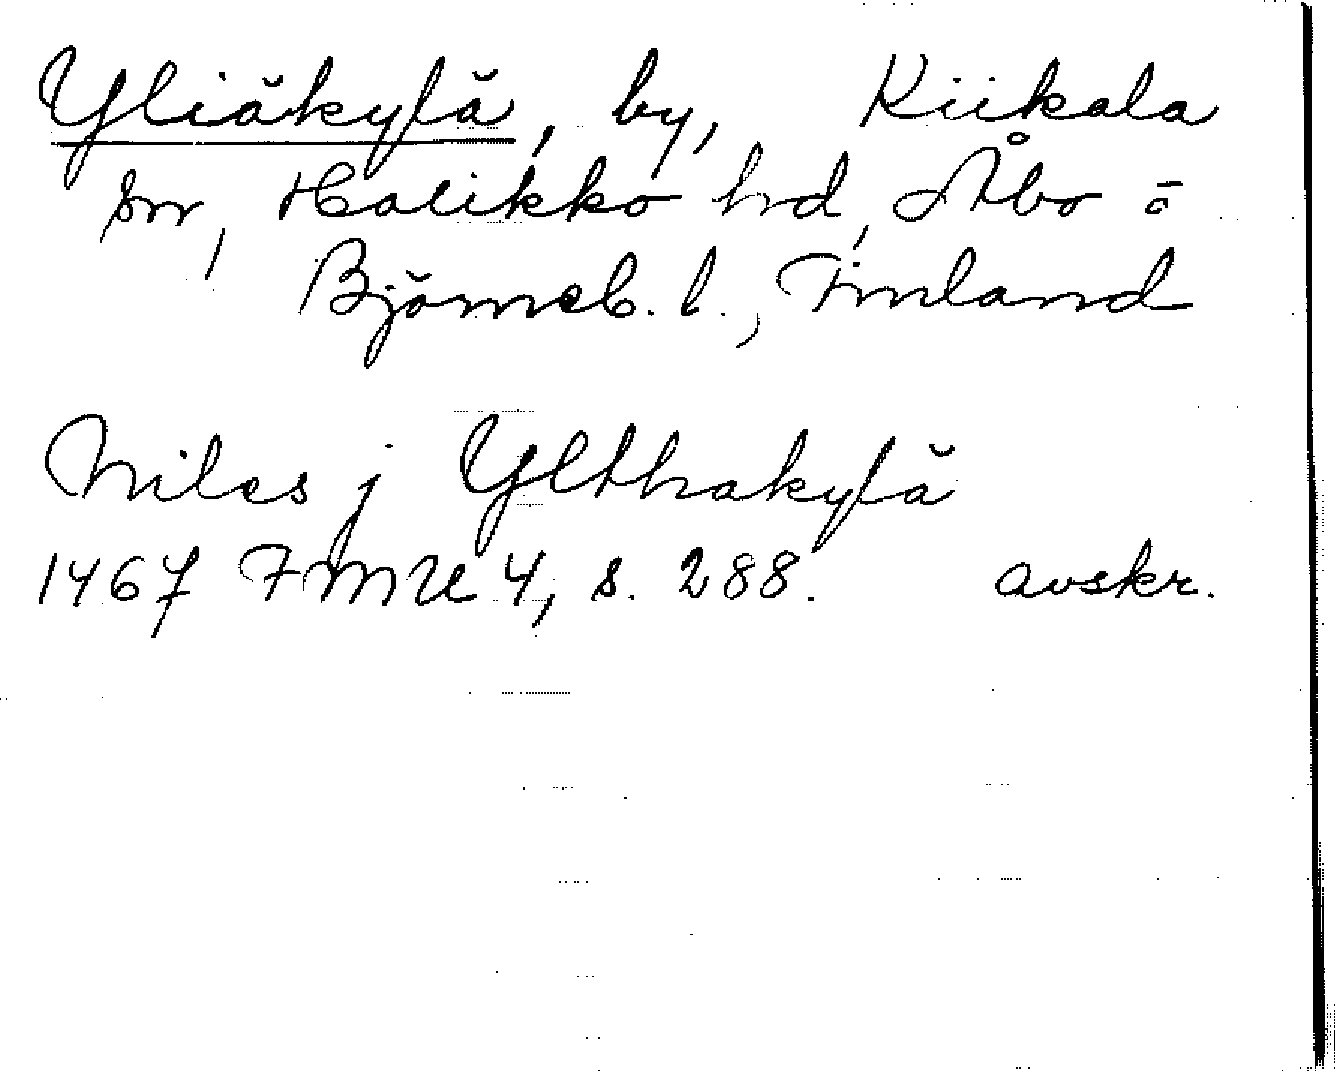 Yliäkylä, by, Kiikala
sn, Halikko hd, Åbo o
Björneb. l., Finland
Niles j Ylthakylä
1467 FMU 4, s. 288. avskr.